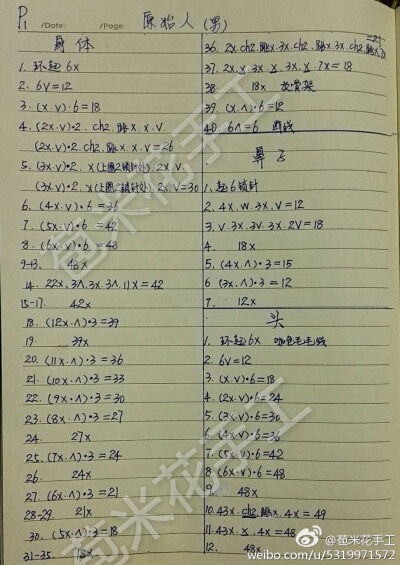 P1 /Date: /Page: 原始人(男)
身体
1. 环起6x
2. 6V=12
3. (x.v)·6=18
4. (2x.v)·2. ch2. 跳x. x. v.
(2x.v)·2. ch2. 跳x. x. V=26
5. (3x.v)·2. x(上圈2锁针处). 2x. v.
(3x.v)·2. x(上圈2锁针处). 2x. V=30
6. (4x.v)·6=36
7. (5x.v)·6=42
8. (6x.v)·6=48
9-13. 48x
14. 22x. 3Λ. 3x. 3Λ. 11x=42
15-17. 42x
18. (12x.Λ)·3=39
19. 39x
20. (11x.Λ)·3=36
21. (10x.Λ)·3=33
22. (9x.Λ)·3=30
23. (8x.Λ)·3=27
24. 27x
25. (7x.Λ)·3=24
26. 24x
27. (6x.Λ)·3=21
28-29. 21x
30. (5x.Λ)·3=18
31-35. 18x
36. 2x. ch2. 跳x. 3x. ch2. 跳x. 3x. ch2. 跳x. 7x
=21
37. 2x. x. 3x. x. 3x. x. 7x=18
38. 18x 放骨架
39. (x.Λ)·6=12
40. 6Λ=6 断线
鼻子
1. 起6锁针
2. 4x. w. 3x. V=12
3. v. 3x. 3v. 3x. 2V=18
4. 18x
5. (4x.Λ)·3=15
6. (3x.Λ)·3=12
7. 12x
头
1. 环起6x 咖色毛毛线
2. 6V=12
3. (x.v)·6=18
4. (2x.v)·6=24
5. (3x.v)·6=30
6. (4x.v)·6=36
7. (5x.v)·6=42
8. (6x.v)·6=48
9. 48x
10. 43x. ch2. 跳x. 4x=49
11. 43x. x. 4x=48
12. 48x
苞米花手工
苞米花手工
@苞米花手工
weibo.com/u/5319971572